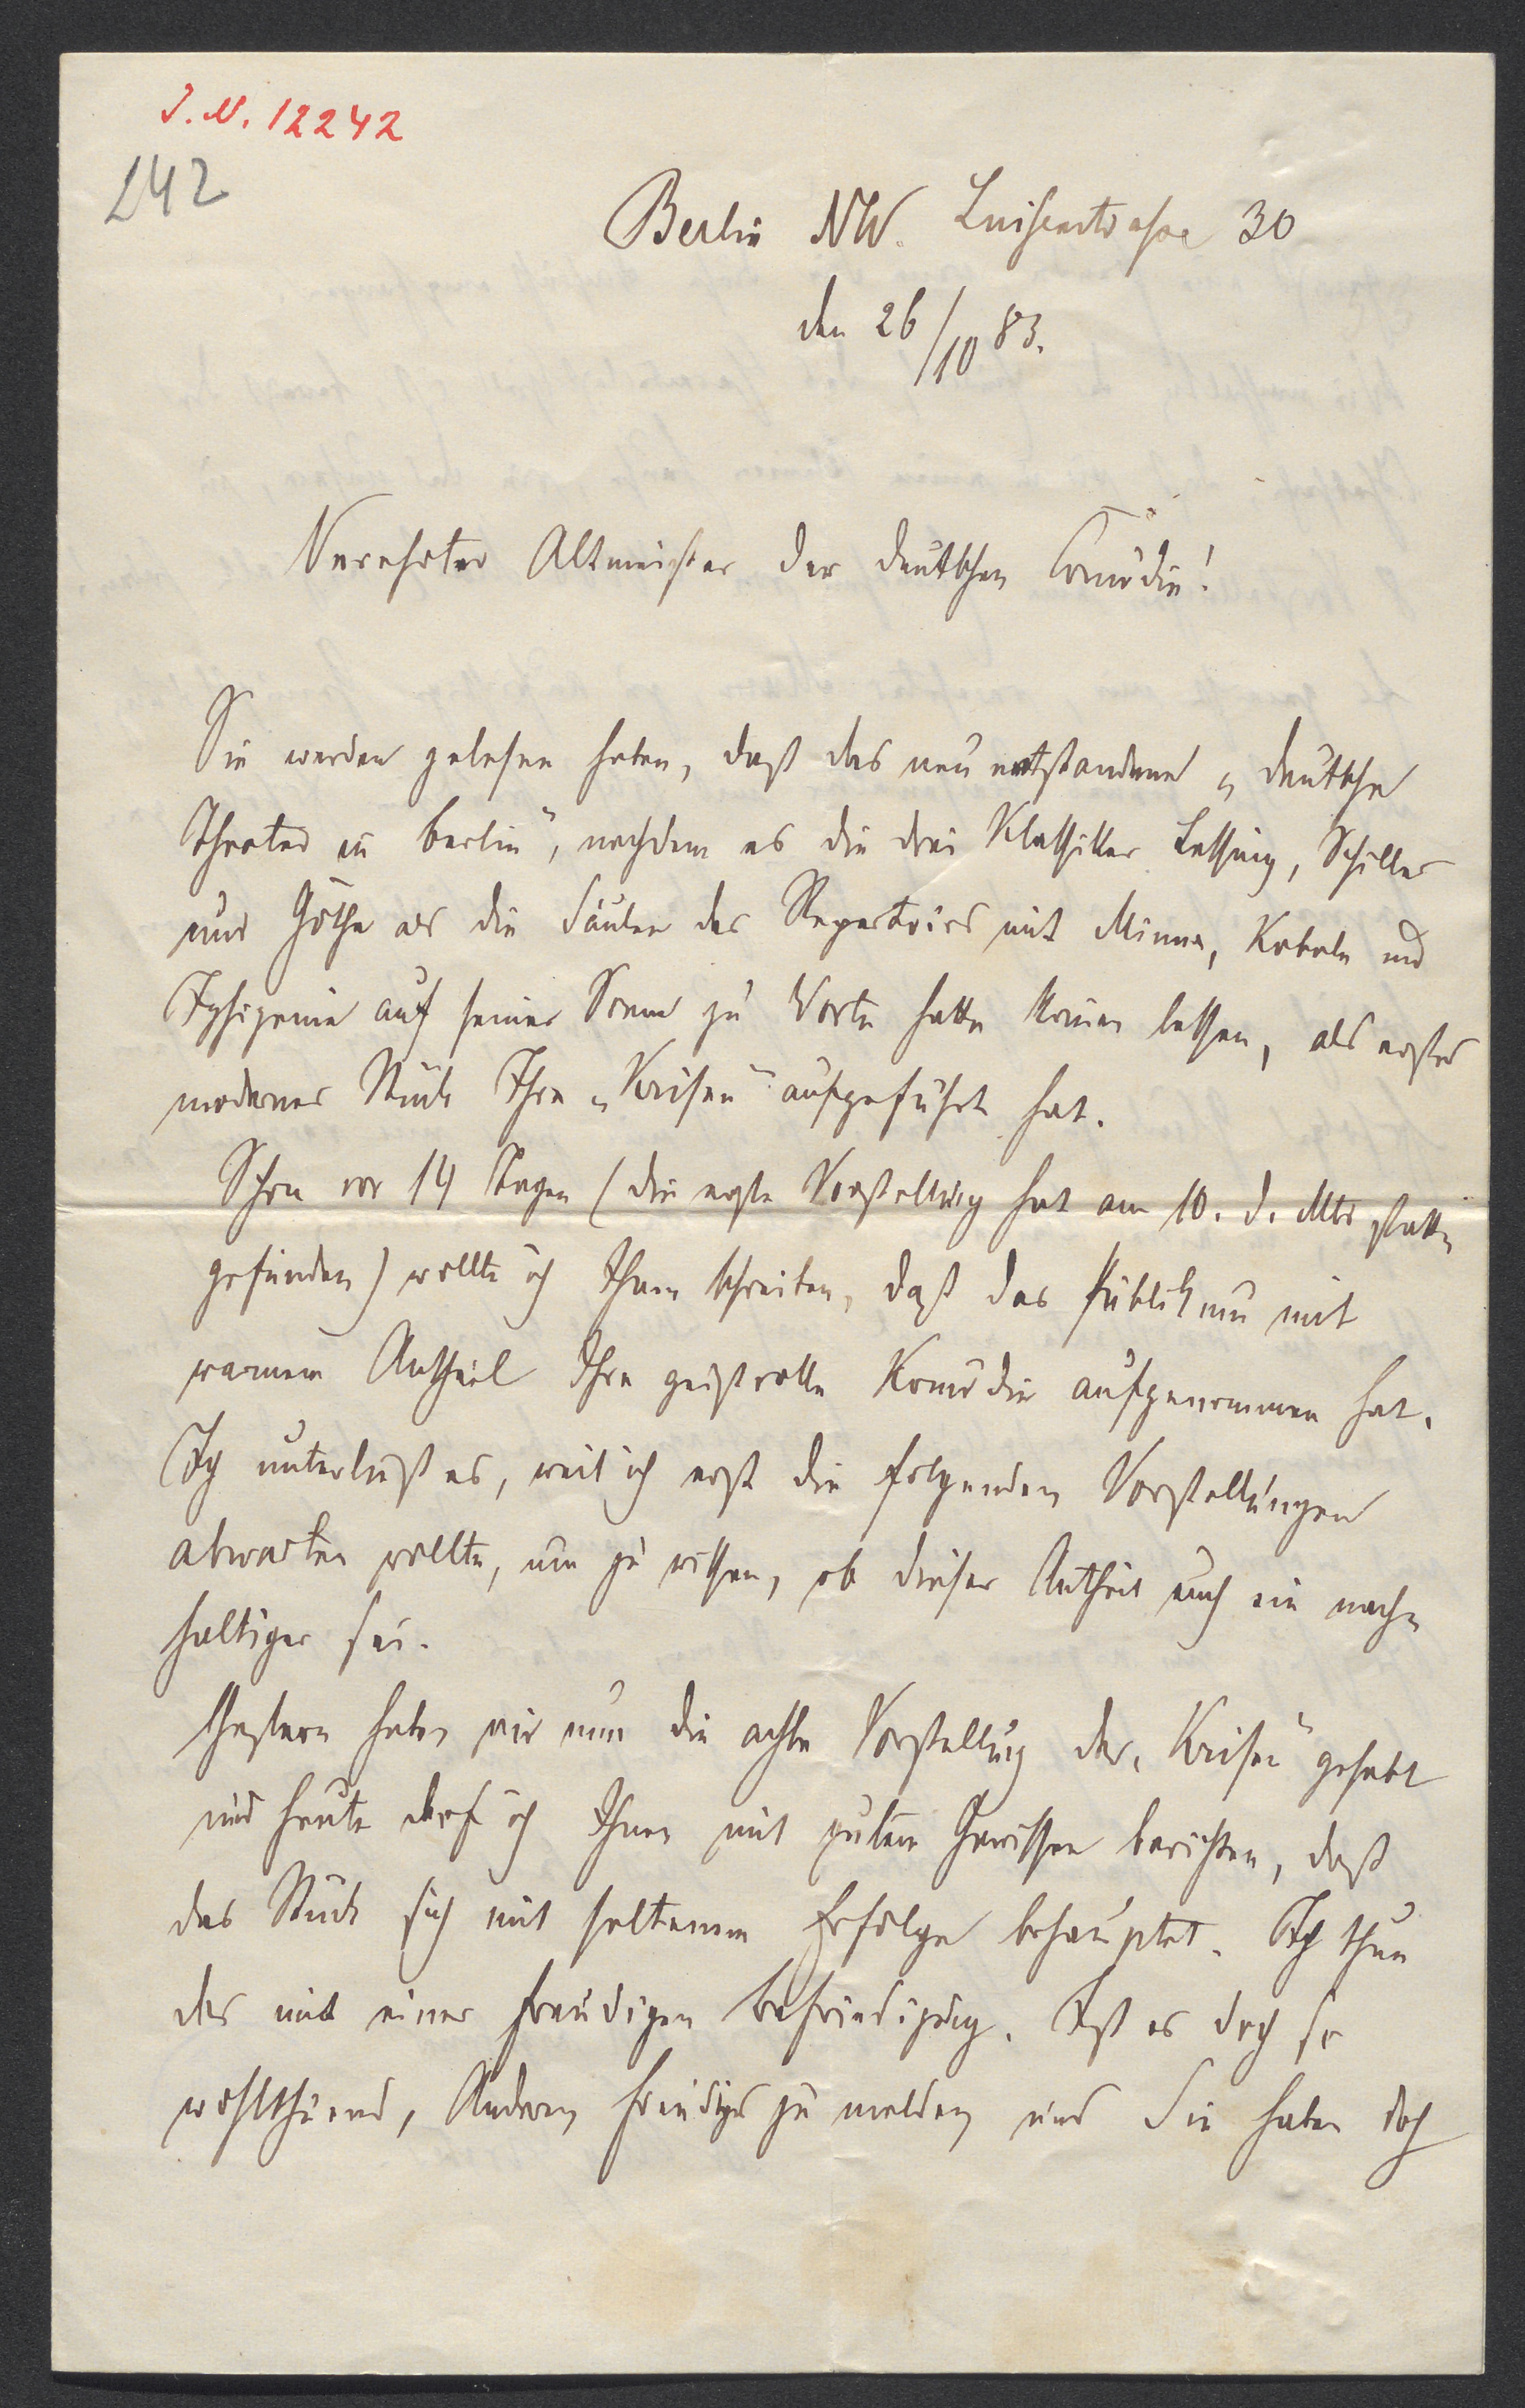 I. N. 12242
242
Berlin NW. Luisenstrasse 30
den 26/10 83.
Verehrter Altmeister der deutschen Comödie!
Sie werden gelesen haben, daß das neu entstandene „deutsche
Theater in Berlin“, nachdem es die drei Klassiker Lessing, Schiller
und Göthe als die Säulen des Repertoirs mit Minna, Kabale und
Iphigenie auf seiner Scene zu Worte hatte kommen lassen, als erstes
modernes Stück Ihre „Krisen“ aufgeführt hat.
Schon vor 14 Tagen (die erste Vorstellung hat am 10. d. Mts statt-
gefunden) wollte ich Ihnen schreiben, daß das Publikum mit
warmem Antheil Ihre geistvolle Komödie aufgenommen hat.
Ich unterließ es, weil ich erst die folgenden Vorstellungen
abwarten wollte, um zu wissen, ob dieser Antheil auch ein nach-
haltiger sei.
Gestern haben wir nun die achte Vorstellung der „Krisen“ gehabt
und heute darf ich Ihnen mit gutem Gewissen berichten, daß
das Stück sich mit seltenem Erfolge behauptet. Ich thue
das mit einer freudigen Befriedigung. Ist es doch so
wohlthuend, Andern Freudiges zu melden und Sie haben doch